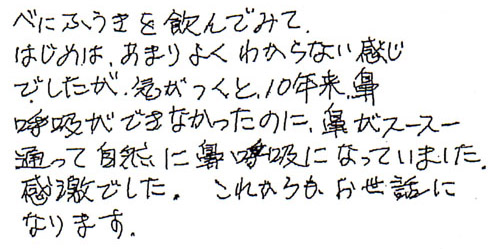 べにふうきを飲んでみて、
はじめは、あまりよくわからない感じ
でしたが、気がつくと、10年来、鼻
呼吸ができなかったのに、鼻がスースー
通って自然に鼻呼吸になっていました。
感激でした。これからもお世話に
なります。